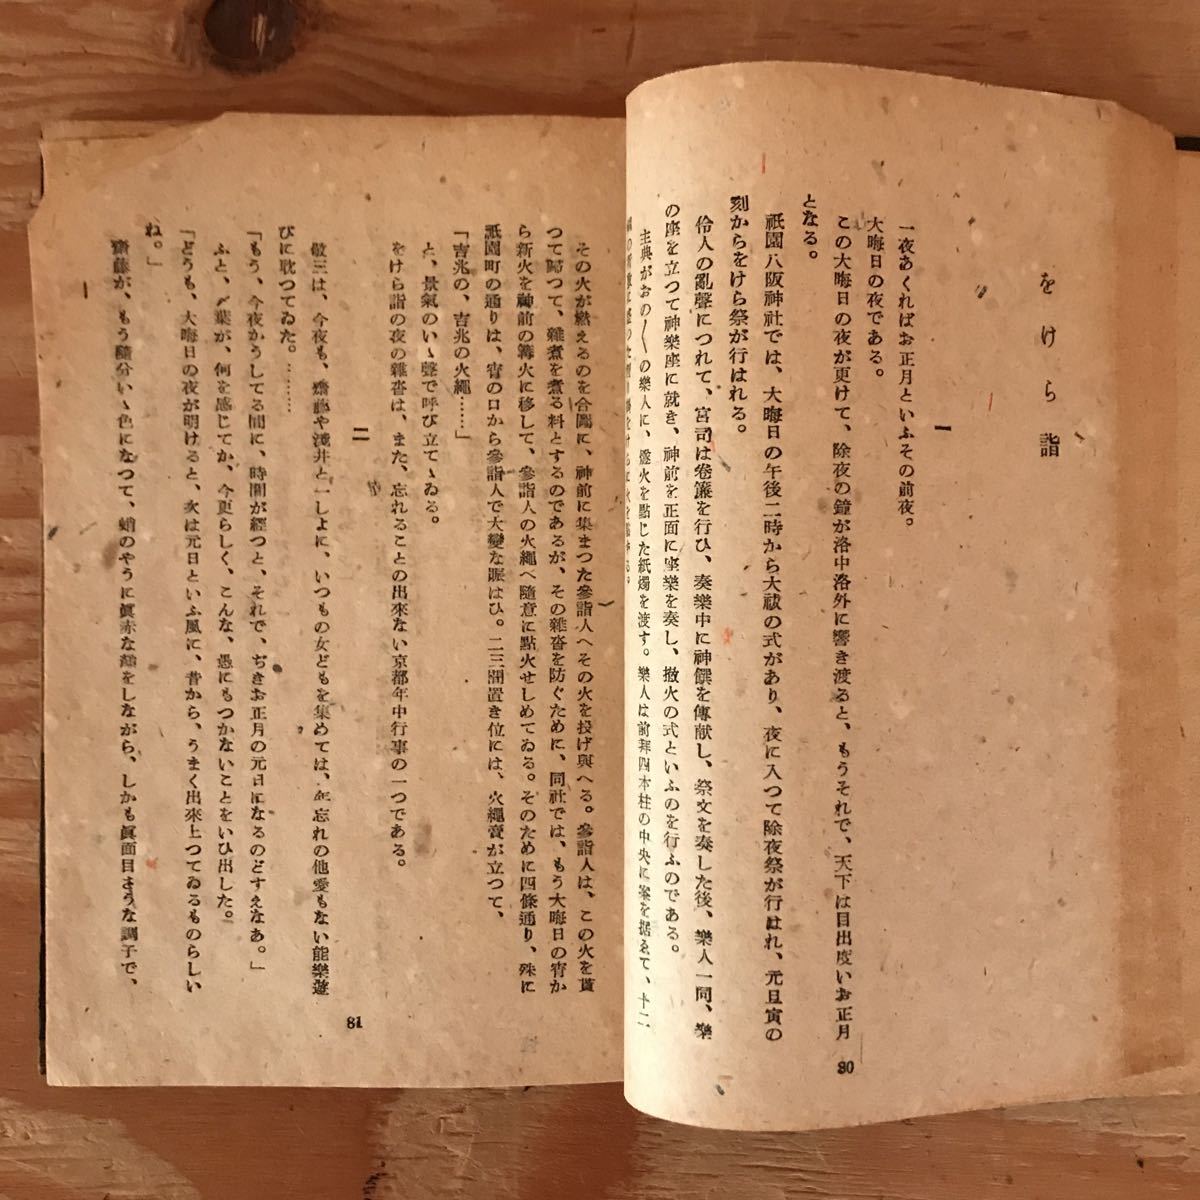 をけら詣
一
一夜あくればお正月といふその前夜。
大晦日の夜である。
この大晦日の夜が更けて、除夜の鐘が洛中洛外に響き渡ると、もうそれで、天下は目出度いお正月
となる。
祇園八阪神社では、大晦日の午後二時から大祓の式があり、夜に入つて除夜祭が行はれ、元旦寅の
刻からをけら祭が行はれる。
伶人の亂聲につれて、宮司は卷簾を行ひ、奏樂中に神饌を傳献し、祭文を奏した後、樂人一同、樂
の座を立つて神樂座に就き、神前を正面に座樂を奏し、撤火の式といふのを行ふのである。
主典がおの〳〵の樂人に、燧火を點じた紙燭を渡す。樂人は前拜四本柱の中央に案を据ゑて、十二
80
その火が燃えるのを合圖に、神前に集まつた參詣人へその火を投げ與へる。參詣人は、この火を貰
つて歸つて、雜煮を煮る料とするのであるが、その雜沓を防ぐために、同社では、もう大晦日の宵か
ら新火を神前の篝火に移して、參詣人の火繩へ隨意に點火せしめてゐる。そのために四條通り、殊に
祇園町の通りは、宵の口から參詣人で大變な賑はひ。二三間置き位には、火繩賣が立つて、
「吉兆の、吉兆の火繩……」
と、景氣のいゝ聲で呼び立てゝゐる。
をけら詣の夜の雜沓は、また、忘れることの出來ない京都年中行事の一つである。
二
敬三は、今夜も、齋藤や淺井と一しよに、いつもの女どもを集めては、年忘れの他愛もない能樂遊
びに耽つてゐた。………
「もう、今夜かうしてる間に、時間が經つと、それで、ぢきお正月の元日になるのどすえなあ。」
ふと、〆葉が、何を感じてか、今更らしく、こんな、愚にもつかないことをいひ出した。
「どうも、大晦日の夜が明けると、次は元日といふ風に、昔から、うまく出來上つてゐるものらしい
ね。」
齋藤が、もう隨分いゝ色になつて、蛸のやうに眞赤な顏をしながら、しかも眞面目さうな調子で、
81